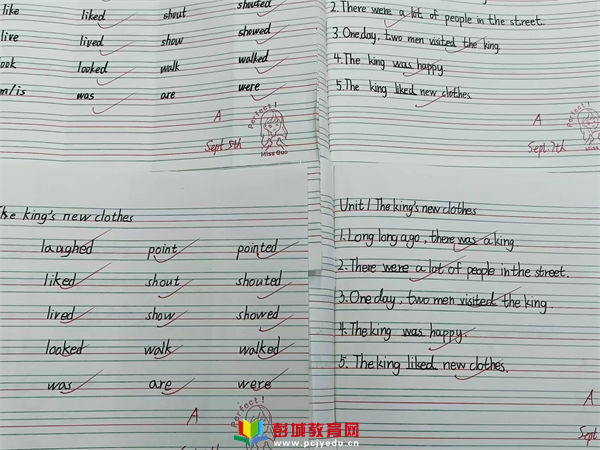 like liked shout shouted
live lived show showed
look looked walk walked
m/is was are were
A
Sept 5th
Perfect!
Miss Guo
2. There were a lot of people in the street.
3. One day, two men visited the king.
4. The king was happy.
5. The king liked new clothes.
A
Sept. 7th
Perfect!
The king's new clothes
laughed point pointed
liked shout shouted
lived show showed
looked walk walked
was are were
A
Perfect!
Unit 1 The king's new clothes
1. Long long ago, there was a king.
2. There were a lot of people in the street.
3. One day, two men visited the king.
4. The king was happy.
5. The king liked new clothes.
A
Sept
彭城教育网
www.pcjyedu.cn